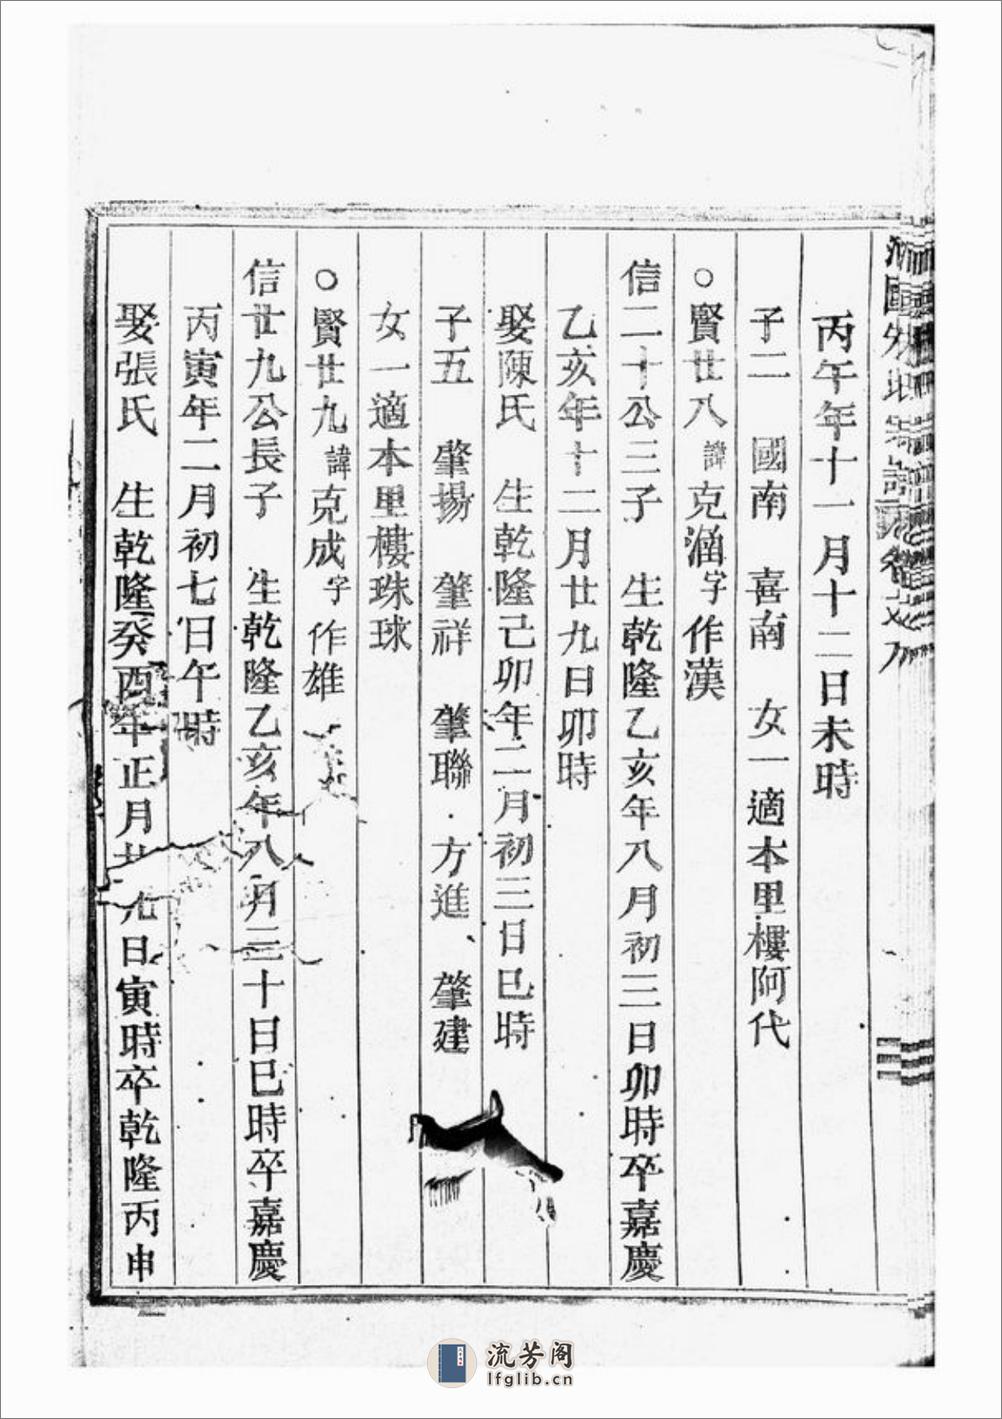 丙午年十一月十二日未時
子二 國南 喜南 女一適本里樓阿代
○賢廿八諱克涵字作漢
信二十公三子 生乾隆乙亥年八月初三日卯時卒嘉慶
乙亥年十二月廿九日卯時
娶陳氏 生乾隆己卯年二月初三日巳時
子五 肇揚 肇祥 肇聯 方進 肇建
女一適本里樓珠球
○賢廿九諱克成字作雄
信廿九公長子 生乾隆乙亥年八月三十日巳時卒嘉慶
丙寅年二月初七日午時
娶張氏 生乾隆癸酉年正月廿九日寅時卒乾隆丙申
流芳阁
lfglib.cn